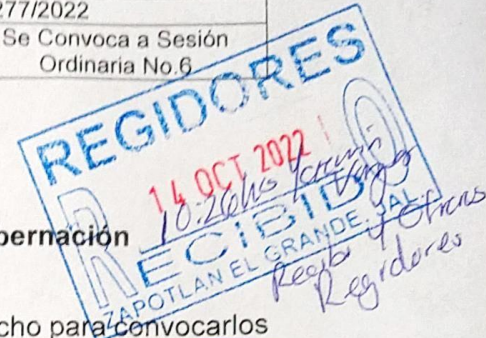 277/2022
Se Convoca a Sesión
Ordinaria No.6
REGIDORES
14 OCT 2022
10:26hs
RECIBIDO
ZAPOTLAN EL GRANDE, JAL.
Recibi 4 Otrcns
Regidores
bernación
cho para convocarlos